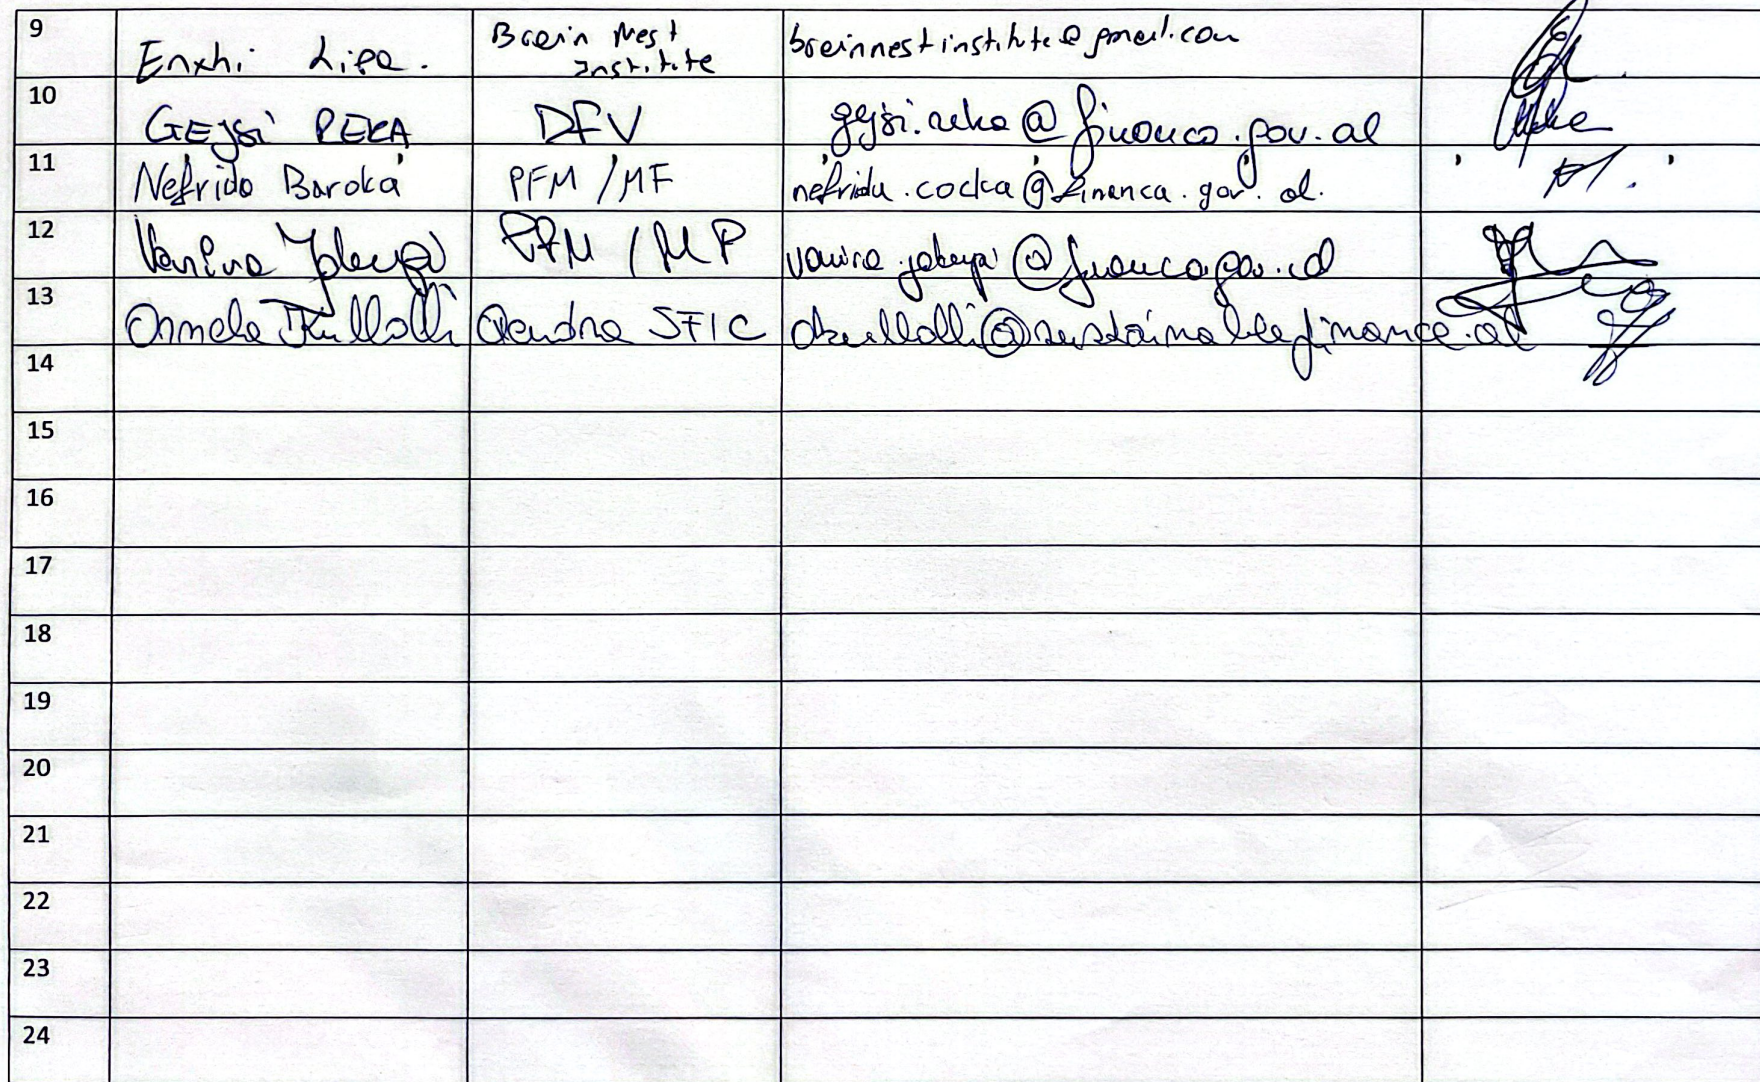 9 Enxhi Lipa. Brain Nest Institute brainnestinstitute@gmail.com
10 GEJSI REKA DFV gejsi.reka@financa.gov.al
11 Nefrida Baroka PFM / MF nefrida.cocka@financa.gov.al.
12 PFM / MF @financa.gov.al
13 Ornela Qendra STIC @sustainablefinance.al
14
15
16
17
18
19
20
21
22
23
24